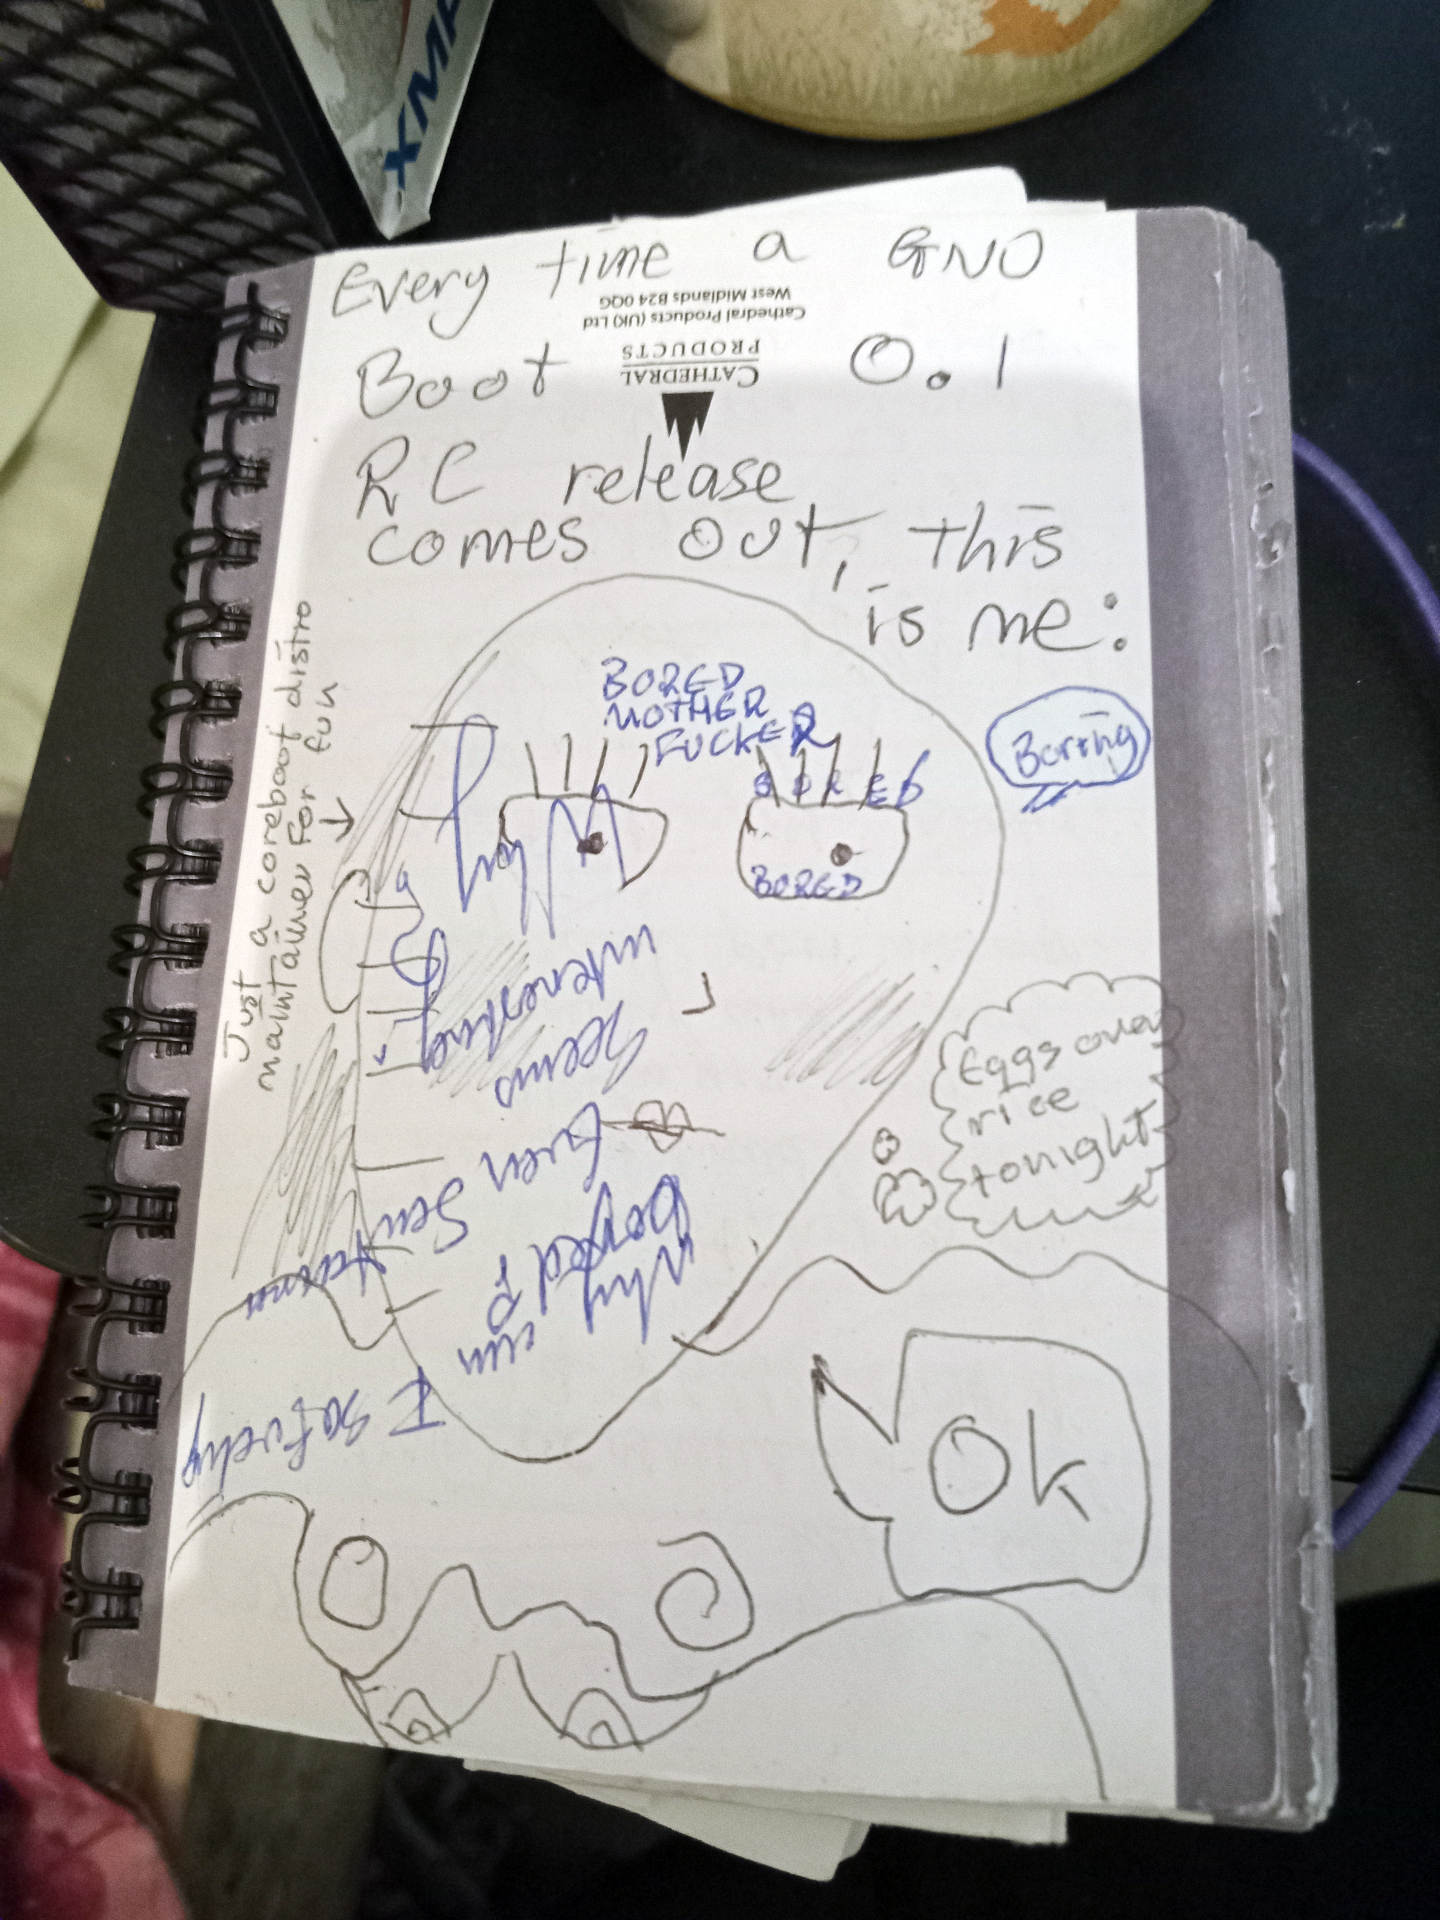 XMA
Every time a GNU
Boot 0.1
RC release
comes out, this
is me:
CATHEDRAL
PRODUCTS
Cathedral Products (UK) Ltd
West Midlands B24 0QG
Just
a coreboot distro
maintainer for fun
BORED
MOTHER
FUCKER
BORED
BORED
Boring
Why
Why
bored?
Even
Seems
interesting
I
Eggs over
rice
tonight
Ok